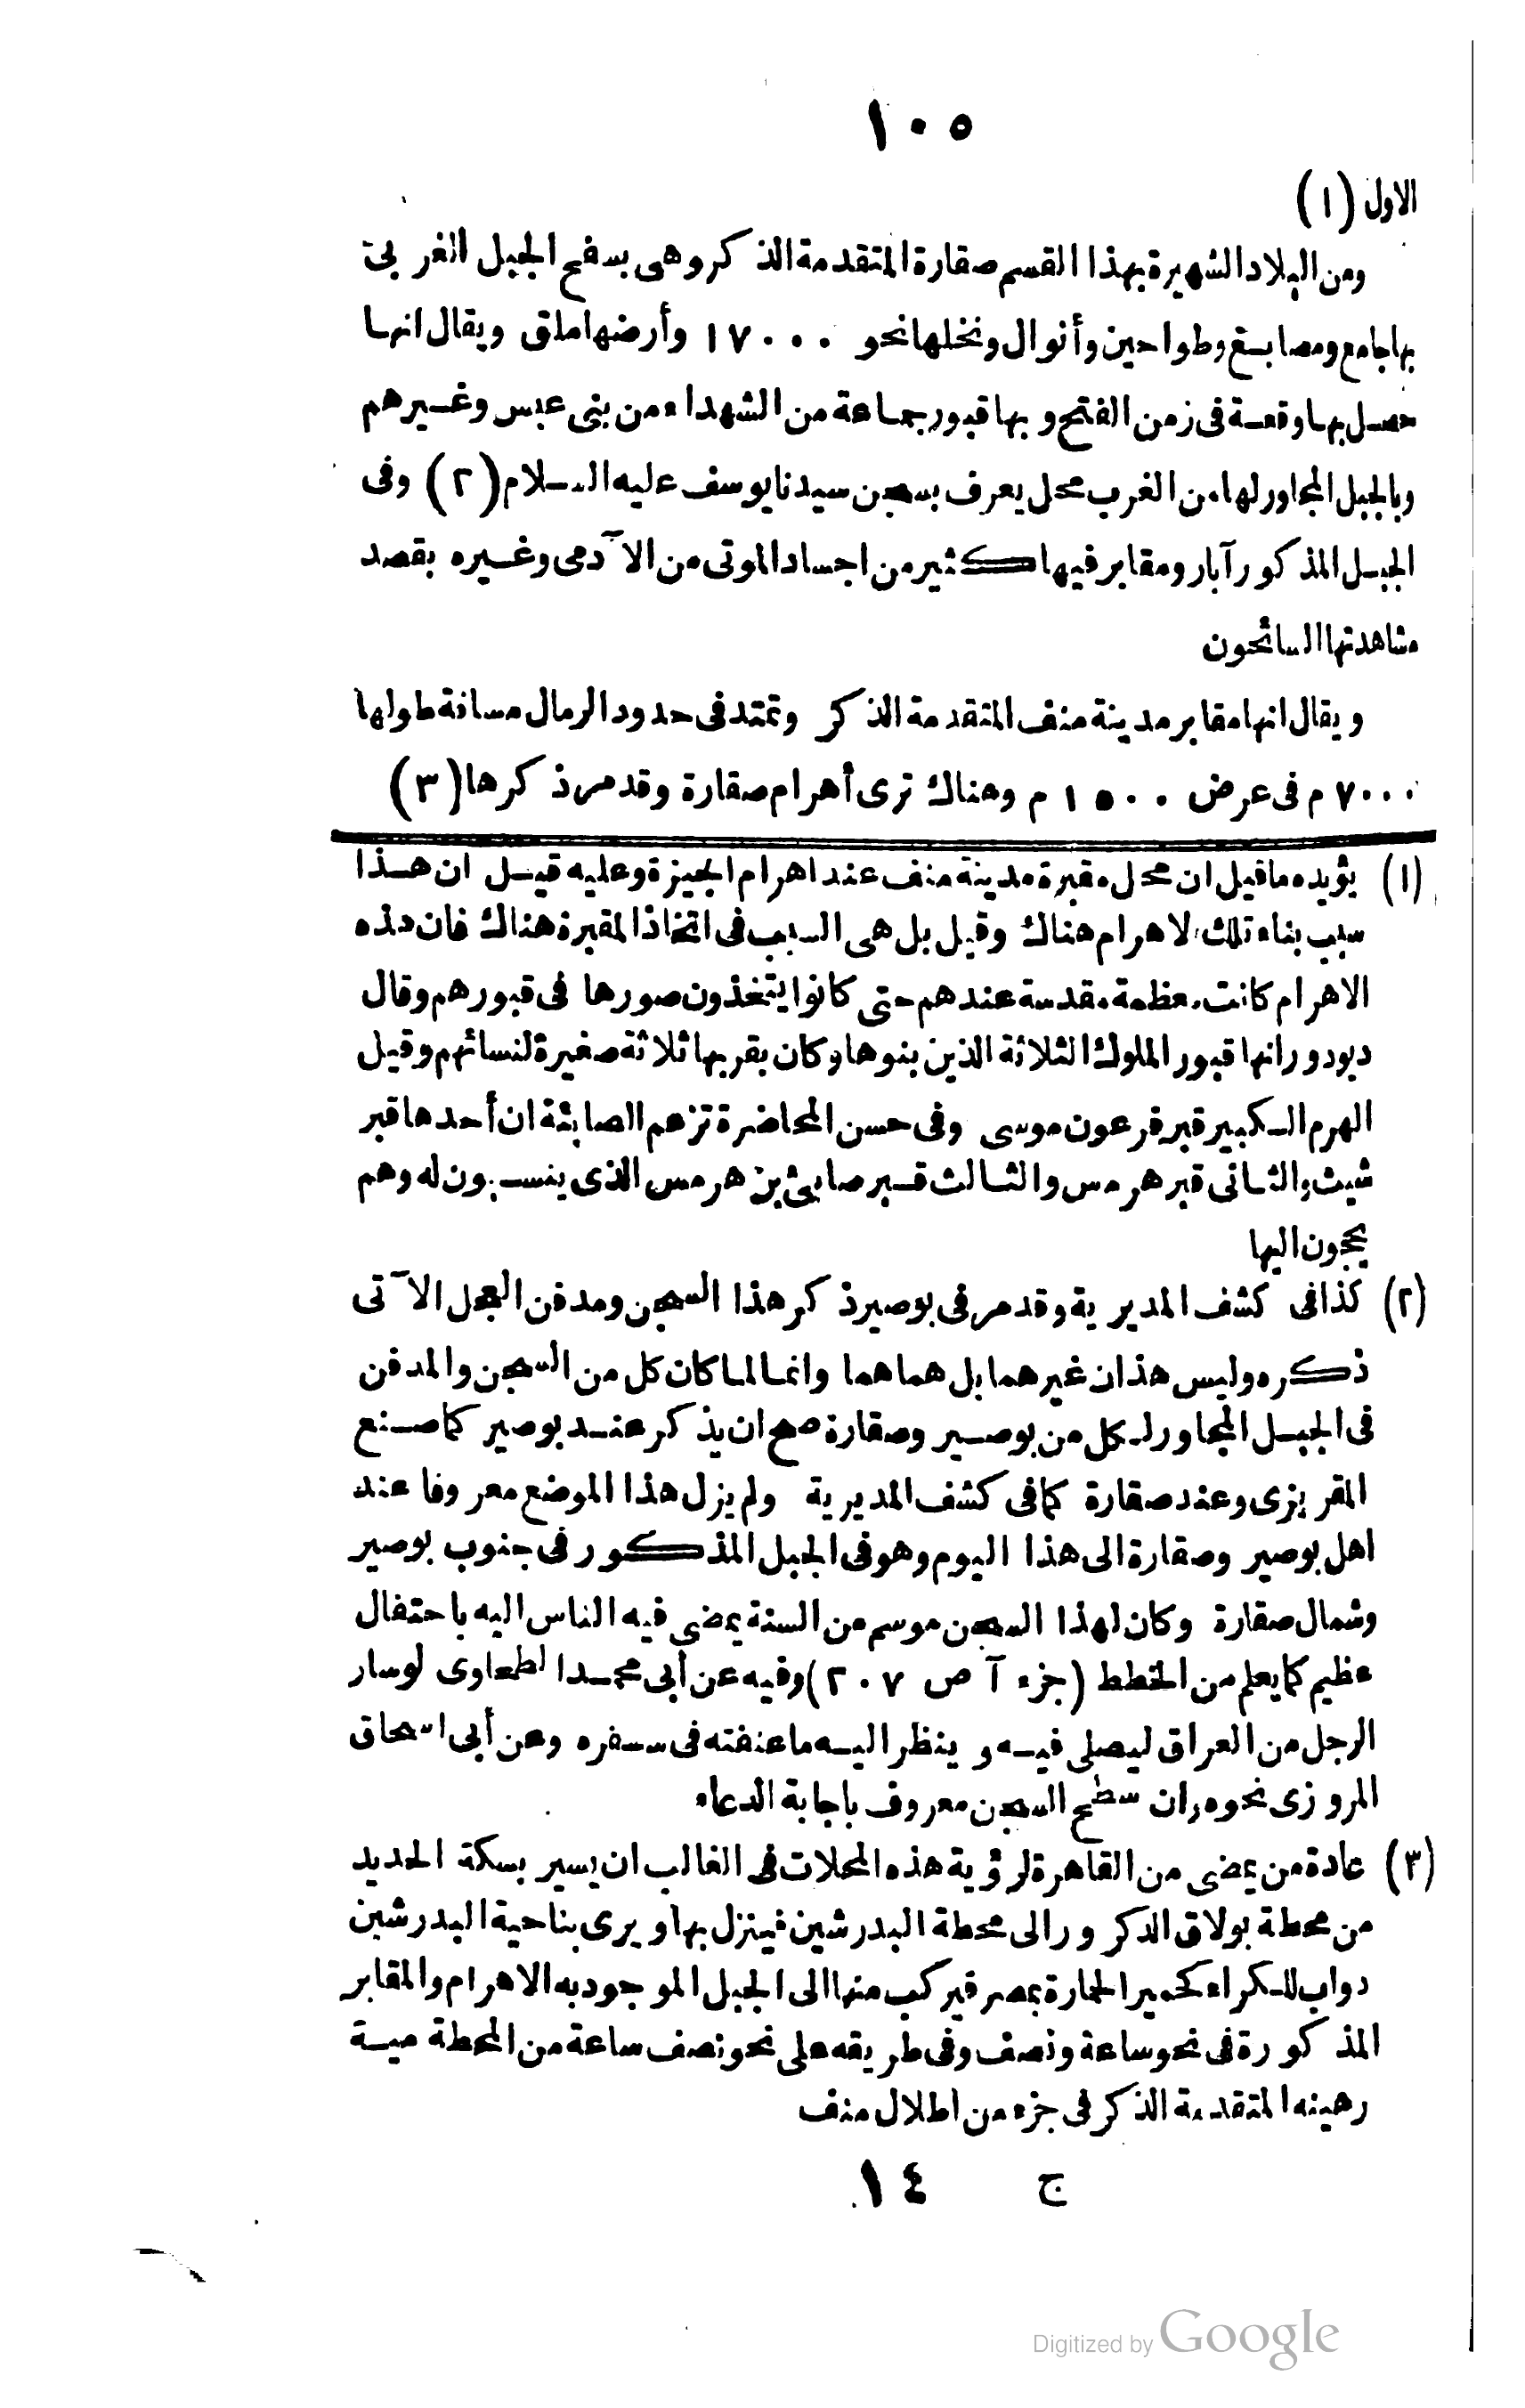 ١٠٥
الاول (١)
ومن البلاد الشهيرة بهذا القسم صقارة المتقدمة الذكر وهى بسفح الجبل الغربى
بها جامع ومصابغ وطواحين وأنوال ونخلها نحو ١٧٠٠٠ وأرضها ملق ويقال انها
حصل بها وقعة فى زمن الفتح وبها قبور جماعة من الشهداء من بنى عبس وغيرهم
وبالجبل المجاور لها من الغرب محل يعرف بسجن سيدنا يوسف عليه السلام (٢) وفى
الجبل المذكور آبار ومقابر فيها كثير من اجساد الموتى من الآدمى وغيره بقصد
مشاهدتها السائحون
ويقال انها مقابر مدينة منف المتقدمة الذكر وتمتد فى حدود الرمال مسافة طولها
٧٠٠٠ م فى عرض ١٥٠٠ م وهناك ترى أهرام صقارة وقد مر ذكرها (٣)
(١) يؤيده ما قيل ان محل مقبرة مدينة منف عند اهرام الجيزة وعليه قيل ان هذا
سبب بناء تلك الاهرام هناك وقيل بل هى السبب فى اتخاذ المقبرة هناك فان هذه
الاهرام كانت معظمة مقدسة عندهم حتى كانوا يتخذون صورها فى قبورهم وقال
ديودور انها قبور الملوك الثلاثة الذين بنوها وكان بقربها ثلاثة صغيرة لنسائهم وقيل
الهرم الكبير قبر فرعون موسى وفى حسن المحاضرة تزعم الصابئة ان أحدها قبر
شيث والثانى قبر هرمس والثالث قبر صابئ بن هرمس الذى ينسبون له وهم
يحجون اليها
(٢) كذا فى كشف المديرية وقد مر فى بوصير ذكر هذا السجن ومدفن العجل الآتى
ذكره وليس هذان غيرهما بل هما هما وانما لما كان كل من السجن والمدفن
فى الجبل المجاور لكل من بوصير وصقارة صح ان يذكر عند بوصير كما صنع
المقريزى وعند صقارة كما فى كشف المديرية ولم يزل هذا الموضع معروفا عند
اهل بوصير وصقارة الى هذا اليوم وهو فى الجبل المذكور فى جنوب بوصير
وشمال صقارة وكان لهذا السجن موسم من السنة يمضى فيه الناس اليه باحتفال
عظيم كما يعلم من الخطط (جزء آ ص ٢٠٧) وفيه عن أبى محمد الطحاوى لو سار
الرجل من العراق ليصلى فيه وينظر اليه ما عنفته فى سفره وعن أبى اسحاق
المروزى نحوه وان سطح السجن معروف باجابة الدعاء
(٣) عادة من يمضى من القاهرة لرؤية هذه المحلات فى الغالب ان يسير بسكة الحديد
من محطة بولاق الدكرور الى محطة البدرشين فينزل بها ويرى بناحية البدرشين
دواب للكراء كحمير الحمارة بمصر فيركب منها الى الجبل الموجود به الاهرام والمقابر
المذكورة فى نحو ساعة ونصف وفى طريقه على نحو نصف ساعة من المحطة ميت
رهينه المتقدمة الذكر فى جزء من اطلال منف
ج ١٤
Digitized by Google